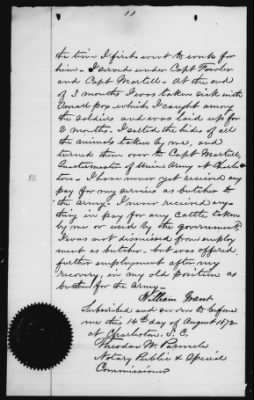 11
the time I first went to work for
him. I served under Capt Fowler
and Capt Martell. At the end
of 3 months I was taken sick with
small pox which I caught among
the soldiers and was laid up for
2 months. I salted the hides of all
the animals taken by me, and
turned them over to Capt Martell,
Quartermaster of Union Army at Charles-
ton. I have never yet received any
pay for my service as butcher to
the Army. I never received any-
thing in pay for any cattle taken
by me or used by the government.
I was not dismissed from employ-
ment as butcher, but was offered
further employment after my
recovery, in my old position as
butcher for the Army.
William Grant
Subscribed and sworn to before
me this 14th day of August 1872
at Charleston S.C.
Theodore W.
Notary Public & Special
Commissioner